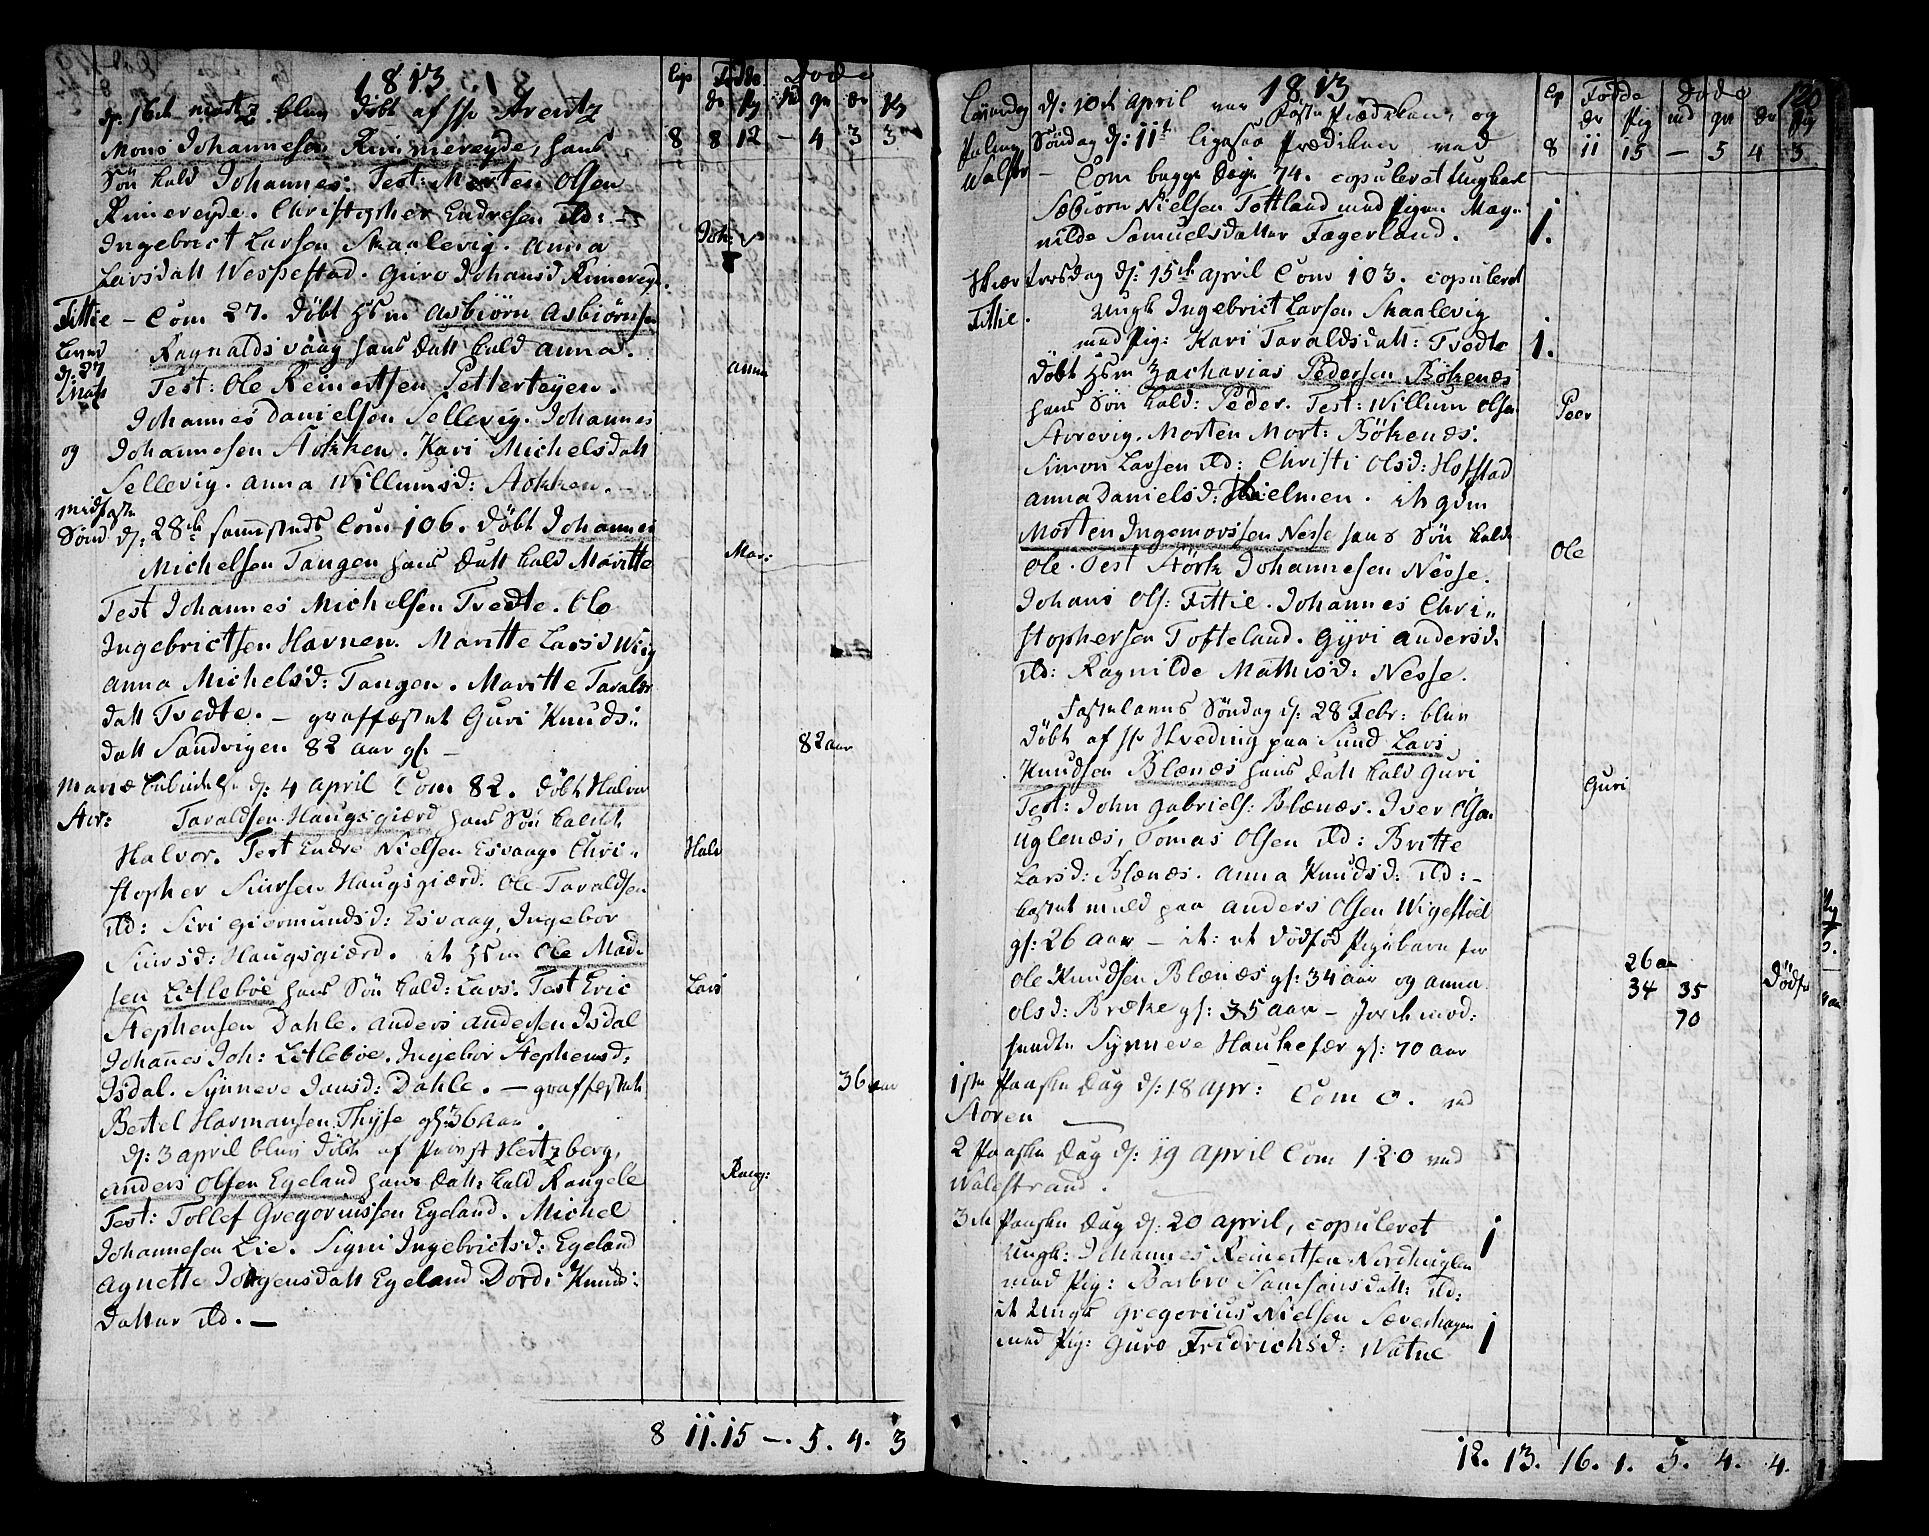 1813
Cop Fødde Døde
dr pg md qv dr pg
d: 16de martz blev døbt af Hr Arentz
8 8 12 — 4 3 3
Mons Johannesen Rimmereyde, hans
Søn kald Johannes: Test: Morten Olsen
Rimereyde. Christopher Endresen ild: —
Joh:
Ingebrict Larsen Skaalevig. Anna
Larsdatt Weppestad. Guro Johansd Rimereyde.
Fittie — Com 27. døbt Hsm Asbiørn Asbiørnsen
Ragnaldsvaag hans datt kald Anna.
d: 27
Marts
Anna
Test: Ole Reinertsen Pettertøyen.
Johannes Danielsen Sellevig. Johannes
og Johannesen Aakken. Kari Michelsdatt
Sellevig. Anna Willumsd: Aakken. —
midfaste
Sønd d: 28de samesteds Com 106. døbt Johannes
Michelsen Tangen hans datt kald Maritte
Mar:
Test Johannes Michelsen Tvedte. Ole
Ingebrictsen Havnen. Maritte Larsd Wiig
Anna Michelsd: Tangen. Maritte Taralds
datt Tvedte. — graffæstet Guri Knuds:
datt Sandvigen 82 aar gl —
82 aar
Mariæ d: 4 April Com 82. døbt Halvor
Taraldsen Haugsgiærd hans Søn kaldt
Halvor. Test Endre Nielsen Esvaag. Chri-
Halv
stopher Siursen Haugsgiærd. Ole Taraldsen
ild: Siri Giermundsd: Esvaag, Ingebor
Siursd: Haugsgiærd. it Hsm Ole Mad-
sen Litlebøe hans Søn kald: Lars. Test Eric
Lars
Stephensen Dahle. Anders Andersen Isdal
Johannes Joh: Litlebøe. Ingebor Stephensd:
Isdal. Synneve Jansd: Dahle. — graffæstet
36 aar
Bertel Harmansen Thysse gl: 36 aar.
d: 3 april blev døbt af Provst Hertzberg,
Anders Olsen Egeland hans datt: kald Rangele
Rang:
Test: Tollef Gregoriussen Egeland. Michel
Johannesen Lie. Signi Ingebrictsd: Egeland
Agnette Jørgensdatt Egeland Dordi Knuds:
datter ild. —
8 11. 15 —. 5. 4. 3
1813.
Cop Fødde Døde 120
dr pg md qv dr pg
Løverdag d: 10de April var Poste Prædiken, og
Palme Søndag d: 11te ligesaa Prædiken ved
8 11 15 — 5 4 3
Walestr — Com begge dage 74. copuleret Ungkarl
Sæbiørn Nielsen Tottland med Pigen Mag-
nilde Samuelsdatter Fægerland.
1.
Skiær torsdag d: 15de April Com 103. copuleret
Fittie. Ungk Ingebrict Larsen Skaalevig
med Pig: Kari Taraldsdatt: Tvedte
1.
døbt Hsm Zacharias Pedersen Bøkenæs
hans Søn kald: Peder. Test: Willum Olsen
Peer
Aarevig. Morten Mort: Bøkenæs.
Simon Larsen ild: Christi Olsd: Hofstad
Anna Danielsd: Hielmen. it Hsm
Morten Ingemorssen Nesse hans Søn kald
Ole
Ole. Test Størk Johannesen Nesse.
Johans Ols: Fittie. Johannes Chri-
stophersen Tofteland. Gyri Andersd:
ild: Ragnilde Mathisd: Nesse.
Fastelavns Søndag d: 28 Febr: blev
døbt af Hr Hveding paa Sund Lars
Knudsen Blænæs hans datt kald Guri
Guri
Test: John Gabriels: Blænæs. Iver Olsen
Uglenæs, Tomas Olsen ild: Britte
Larsd: Blænæs. Anna Knudsd: ild: —
kastet muld paa Anders Olsen Wigestøel
gl: 26 aar — it: et dødfød Pigebarn for
26 a
Ole Knudsen Blænæs gl: 34 aar og Anna
34 35 Dødf
Olsd: Bræke gl: 35 aar —
70
Synneve Haukefær gl: 70 aar
1ste Paaske Dag d: 18 Apr: Com 0. ved
Aaren
2 Paaske Dag d: 19 April Com 120 ved
Walestrand.
3de Paaske Dag d: 20 April, copuleret
Ungk: Johannes Reinertsen Nordhuglen
1
med Pig: Barbro Samsonsdatt: ild:
it Ungk Gregorius Nielsen Sæverhagen
1
med Pig: Guro Fridrichsd: Watne
12. 13. 16. 1. 5. 4. 4.